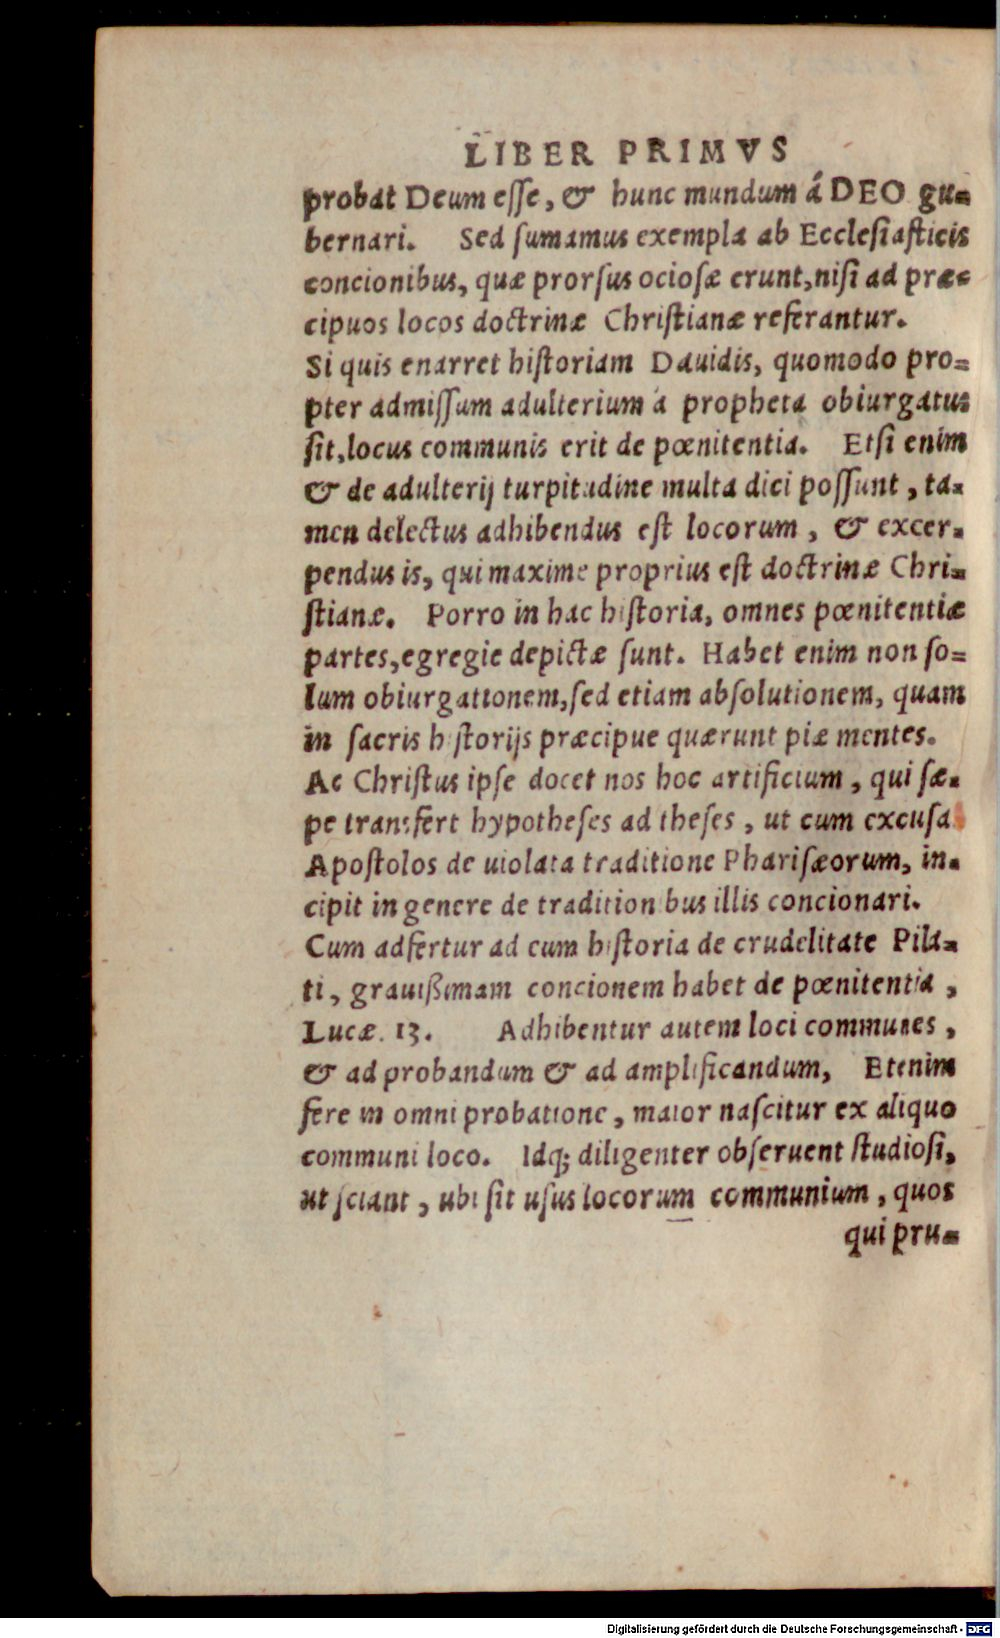 LIBER PRIMVS
probat Deum esse, & hunc mundum á DEO gu-
bernari. Sed sumamus exempla ab Ecclesiasticis
concionibus, quæ prorsus ociosæ erunt, nisi ad præ-
cipuos locos doctrinæ Christianæ referantur.
Si quis enarret historiam Dauidis, quomodo pro-
pter admissum adulterium á propheta obiurgatus
sit, locus communis erit de pœnitentia. Etsi enim
& de adulterij turpitudine multa dici possunt, ta-
men delectus adhibendus est locorum, & excer-
pendus is, qui maxime proprius est doctrinæ Chri-
stianæ. Porro in hac historia, omnes pœnitentiæ
partes, egregie depictæ sunt. Habet enim non so-
lum obiurgationem, sed etiam absolutionem, quam
in sacris historijs præcipue quærunt piæ mentes.
Ac Christus ipse docet nos hoc artificium, qui sæ-
pe transfert hypotheses ad theses, ut cum excusa
Apostolos de uiolata traditione Pharisæorum, in-
cipit in genere de traditionibus illis concionari.
Cum adfertur ad eum historia de crudelitate Pila-
ti, grauißimam concionem habet de pœnitentia,
Lucæ. 13. Adhibentur autem loci communes,
& ad probandum & ad amplificandum, Etenim
fere in omni probatione, maior nascitur ex aliquo
communi loco. Idq; diligenter obseruent studiosi,
ut sciant, ubi sit usus locorum communium, quos
qui pru-
Digitalisierung gefördert durch die Deutsche Forschungsgemeinschaft - DFG